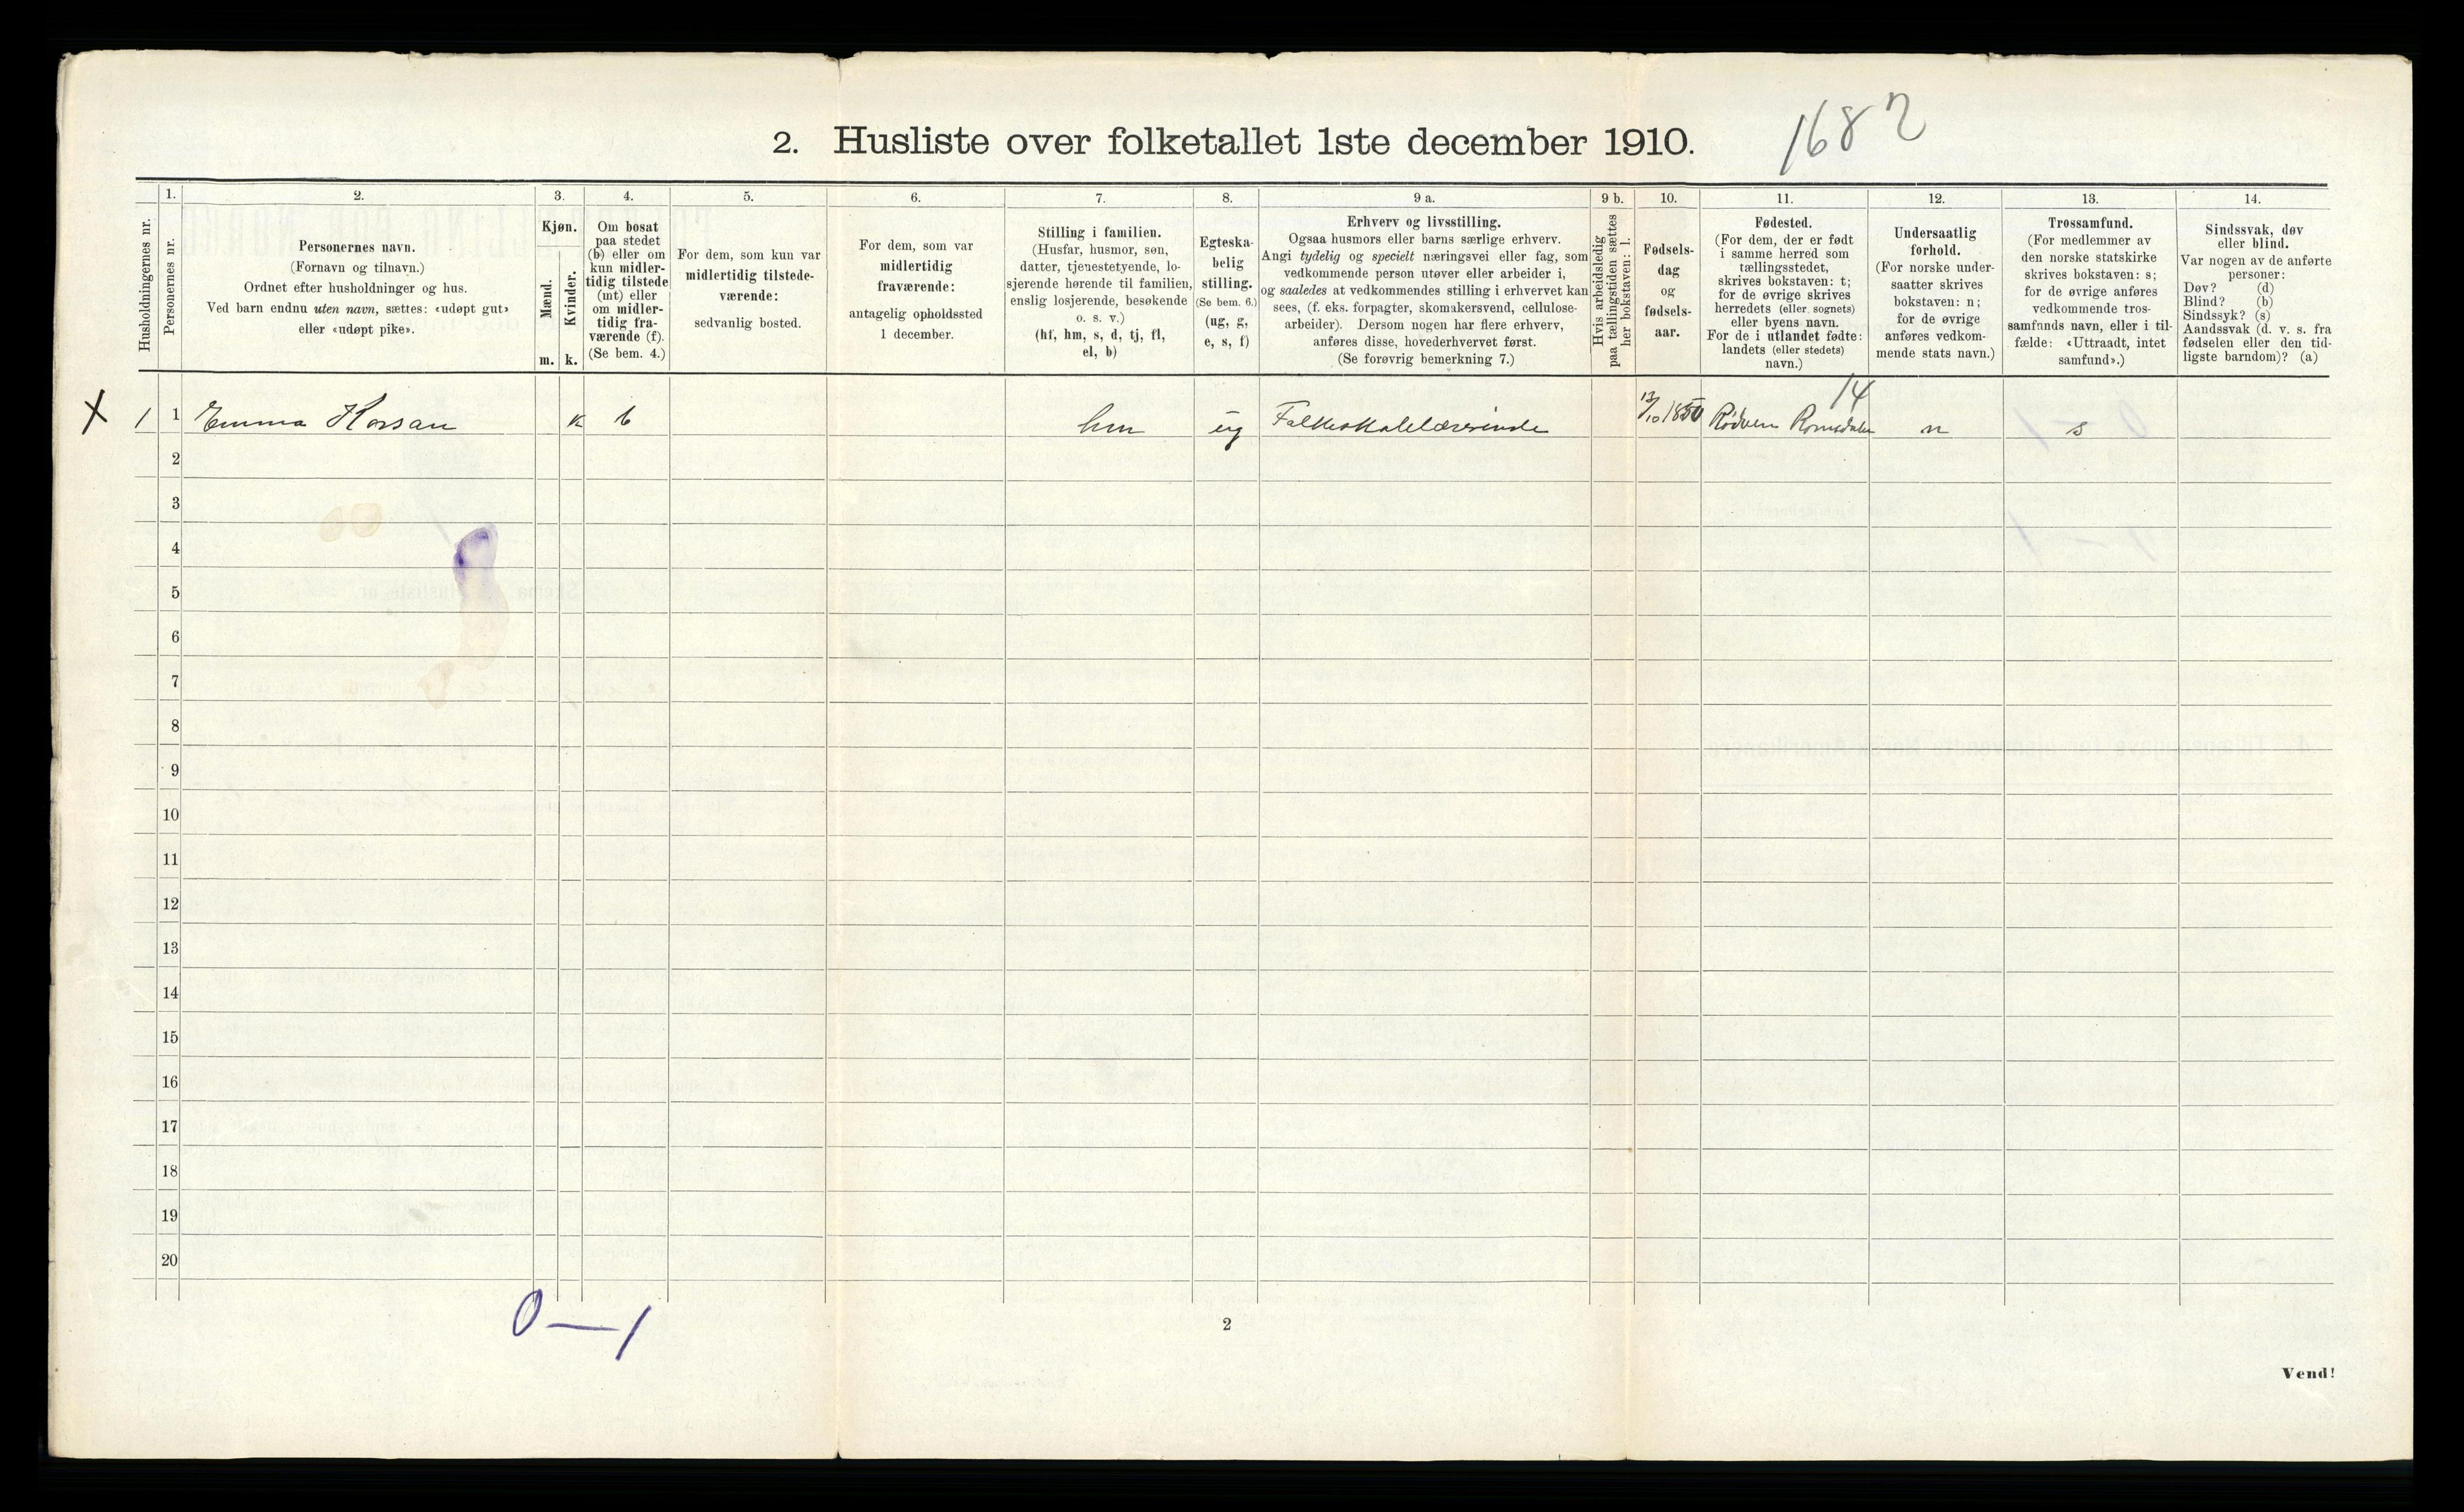 2. Husliste over folketallet 1ste december 1910.
1682
Husholdningernes nr.
1.
Personernes nr.
2.
Personernes navn.
(Fornavn og tilnavn.)
Ordnet efter husholdninger og hus.
Ved barn endnu uten navn, sættes: «udøpt gut»
eller «udøpt pike».
3.
Kjøn.
Mænd.
Kvinder.
m. k.
4.
Om bosat
paa stedet
(b) eller om
kun midler-
tidig tilstede
(mt) eller
om midler-
tidig fra-
værende (f).
(Se bem. 4.)
5.
For dem, som kun var
midlertidig tilstede-
værende:
sedvanlig bosted.
6.
For dem, som var
midlertidig
fraværende:
antagelig opholdssted
1 december.
7.
Stilling i familien.
(Husfar, husmor, søn,
datter, tjenestetyende, lo-
sjerende hørende til familien,
enslig losjerende, besøkende
o. s. v.)
(hf, hm, s, d, tj, fl,
el, b)
8.
Egteska-
belig
stilling.
(Se bem. 6.)
(ug, g,
e, s, f)
9 a.
Erhverv og livsstilling.
Ogsaa husmors eller barns særlige erhverv.
Angi tydelig og specielt næringsvei eller fag, som
vedkommende person utøver eller arbeider i,
og saaledes at vedkommendes stilling i erhvervet kan
sees, (f. eks. forpagter, skomakersvend, cellulose-
arbeider). Dersom nogen har flere erhverv,
anføres disse, hovederhvervet først.
(Se forøvrig bemerkning 7.)
9 b.
Hvis arbeidsledig
paa tællingstiden sættes
her bokstaven: l.
10.
Fødsels-
dag
og
fødsels-
aar.
11.
Fødested.
(For dem, der er født
i samme herred som
tællingsstedet,
skrives bokstaven: t;
for de øvrige skrives
herredets (eller sognets)
eller byens navn.
For de i utlandet fødte:
landets (eller stedets)
navn.)
12.
Undersaatlig
forhold.
(For norske under-
saatter skrives
bokstaven: n;
for de øvrige
anføres vedkom-
mende stats navn.)
13.
Trossamfund.
(For medlemmer av
den norske statskirke
skrives bokstaven: s;
for de øvrige anføres
vedkommende tros-
samfunds navn, eller i til-
fælde: «Uttraadt, intet
samfund».)
14.
Sindssvak, døv
eller blind.
Var nogen av de anførte
personer:
Døv? (d)
Blind? (b)
Sindssyk? (s)
Aandssvak (d. v. s. fra
fødselen eller den tid-
ligste barndom)? (a)
14
X 1 1 Emma Korsan k b hm ug Folkeskolelærerinde 13/10 1850 Rödven Romsdalen n s
2
3
4
5
6
7
8
9
10
11
12
13
14
15
16
17
18
19
20
0—1
2
Vend!